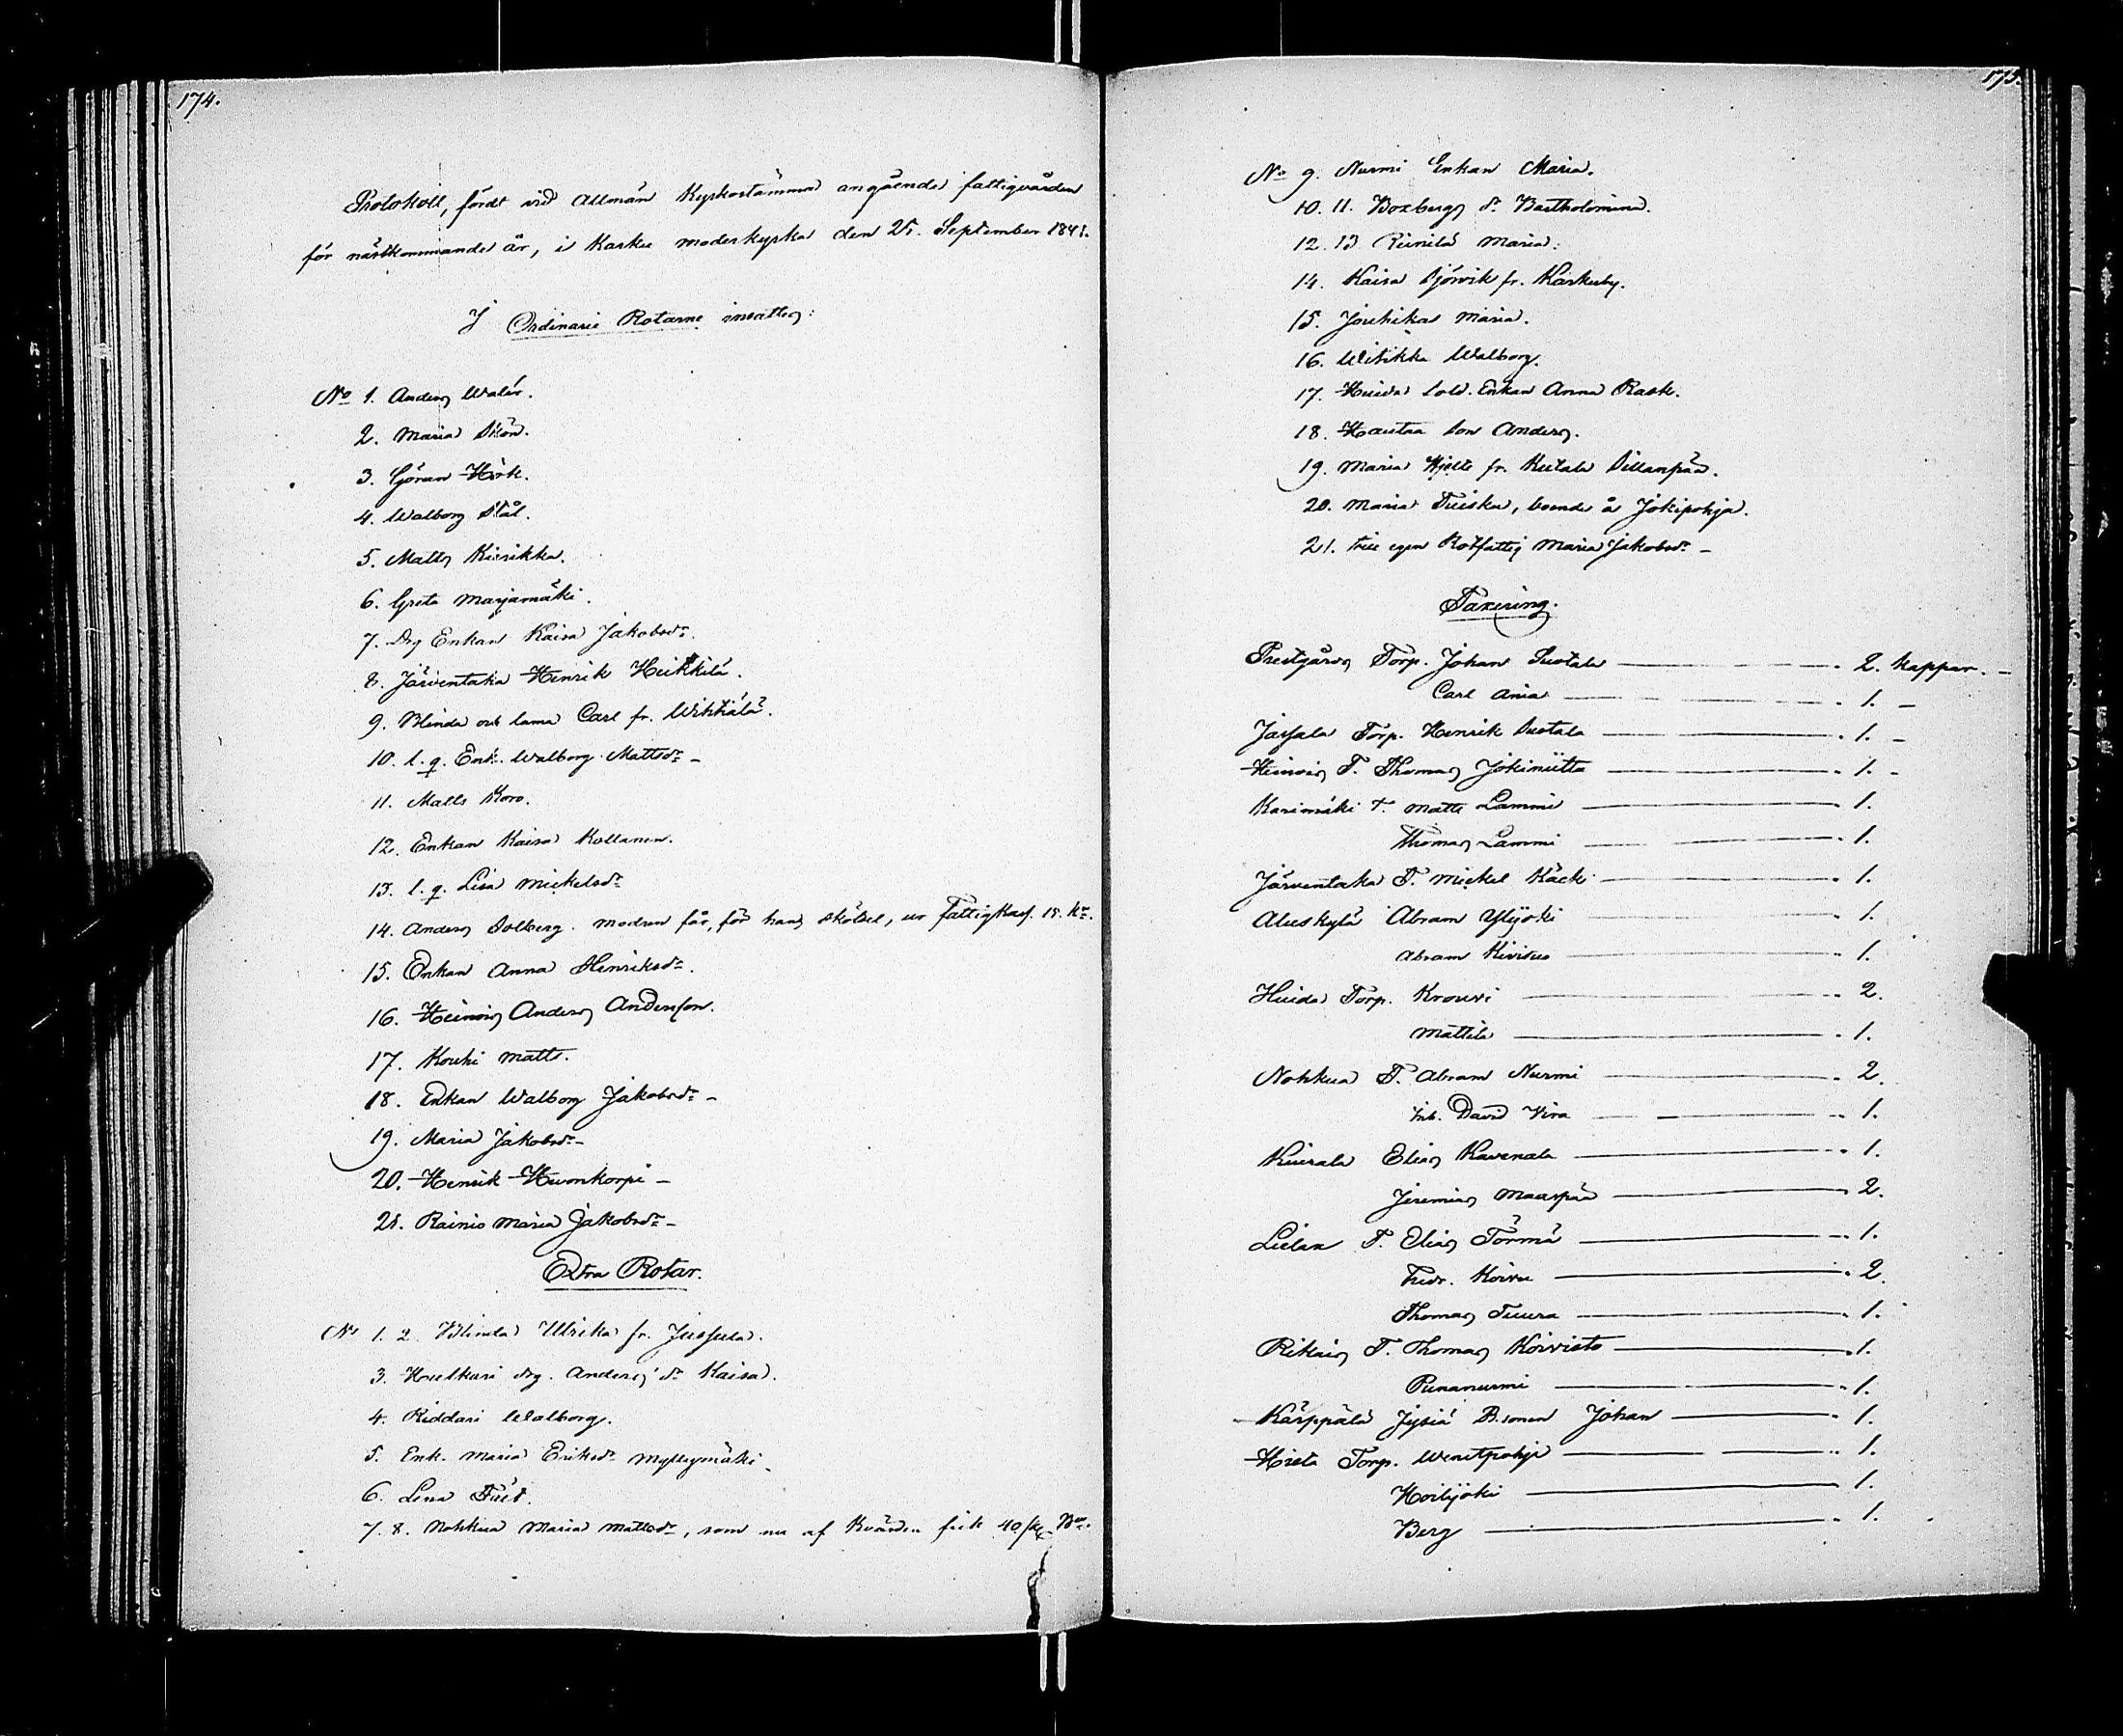 174.
Protokoll, fördt vid allmän Kyrkostämma angående fattigvården
för nästkommande år, i Karku moderkyrka den 25. September 1841.
I Ordinarie Rotarne insattes:
No 1. Anders Walér.
2. Maria Skön.
3. Göran Hök.
4. Walborg Stål.
5. Matts Kiirikka.
6. Greta Marjamäki.
7. Drg Enkan Kaisa Jakobsdr.
8. Järventaka Henrik Heikkilä.
9. Blinda och lama Carl fr.
10. l. q. Enk. Walborg Mattsdr –
11. Matts Koro.
12. Enkan Kaisa Kollanen.
13. l. q. Lisa Mickelsdr
14. Anders Solberg. modren får, för hans skötsel, ur Fattigkass. 15. kr.
15. Enkan Anna Henriksdr.
16. Heinois Anders Andersson.
17. Kouhi Matts.
18. Enkan Walborg Jakobsdr –
19. Maria Jakobsdr –
20. Henrik Hevonkorpi –
21. Rainio Maria Jakobsdr –
Extra Rotar.
No 1. 2. Blinda Ulrika fr. Jussula.
3. Hulkuri drg. Anders dr Kaisa.
4. Riddari Walborg.
5. Enk. Maria Eriksdr Myllymäki.
6. Lena
7. 8. Nohkua Maria Mattsdr, som nu af fick 40
175.
No 9. Nurmi Enkan Maria.
10. 11. Boxbergs dr Bartholomina.
12. 13 Reinilä Maria.
14. Kaisa Björvik fr. Karkuby.
15. Jouhikas Maria.
16. Witikka Walborg.
17. Huida Sold. Enkan Anna Rask.
18. Hautaa son Anders.
19. Maria Hjelte fr. Kutala Sillanpää.
20. Maria Tuisku, boende å Jokipohja.
21. till egen Rotfattig Maria Jakobsdr –
Taxering.
Prestgårds Torp. Johan Suotala — 2. kappar. –
Carl Ania — 1. –
Torp. Henrik Suotala — 1. –
Heinois T. Thomas Jokiniitto — 1. –
Karimäki T. Matts Lammi — 1.
Thomas Lammi — 1.
Järventaka T. Mickel Käcki — 1.
Aluskylä Abram Ylijoki — 1.
Abram Kivisuo — 1.
Huida Torp. Krouvi — 2.
Mattila — 1.
Nohkua T. Abram Nurmi — 2.
Inh. David Vira — 1.
Kiurala Elias Kavenala — 1.
Jeremias Maaspää — 2.
Lielax T. Elias Törmä — 1.
Fredr. Koivu — 2.
Thomas Tuura — 1.
Rikais T. Thomas Koivisto — 1.
Punanurmi — 1.
Karppala Jysiä B.sonen Johan — 1.
Hieta Torp. Wenetpohja — 1.
Koilijoki — 1.
Berg — 1.